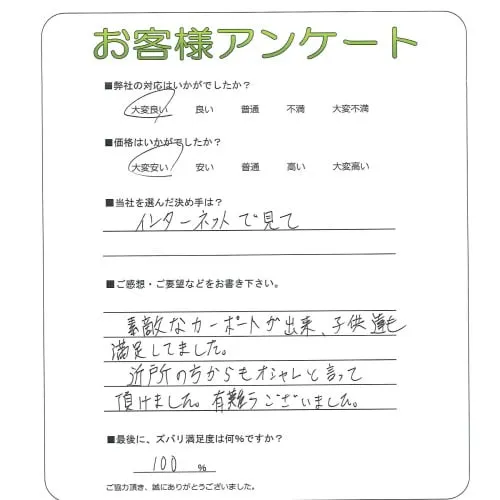 お客様アンケート
■弊社の対応はいかがでしたか?
大変良い 良い 普通 不満 大変不満
■価格はいかがでしたか?
大変安い 安い 普通 高い 大変高い
■当社を選んだ決め手は?
インターネットで見て
■ご感想・ご要望などをお書き下さい。
素敵なカーポートが出来、子供達も
満足してました。
近所の方からもオシャレと言って
頂けました。有難うございました。
■最後に、ズバリ満足度は何%ですか?
100 %
ご協力頂き、誠にありがとうございました。